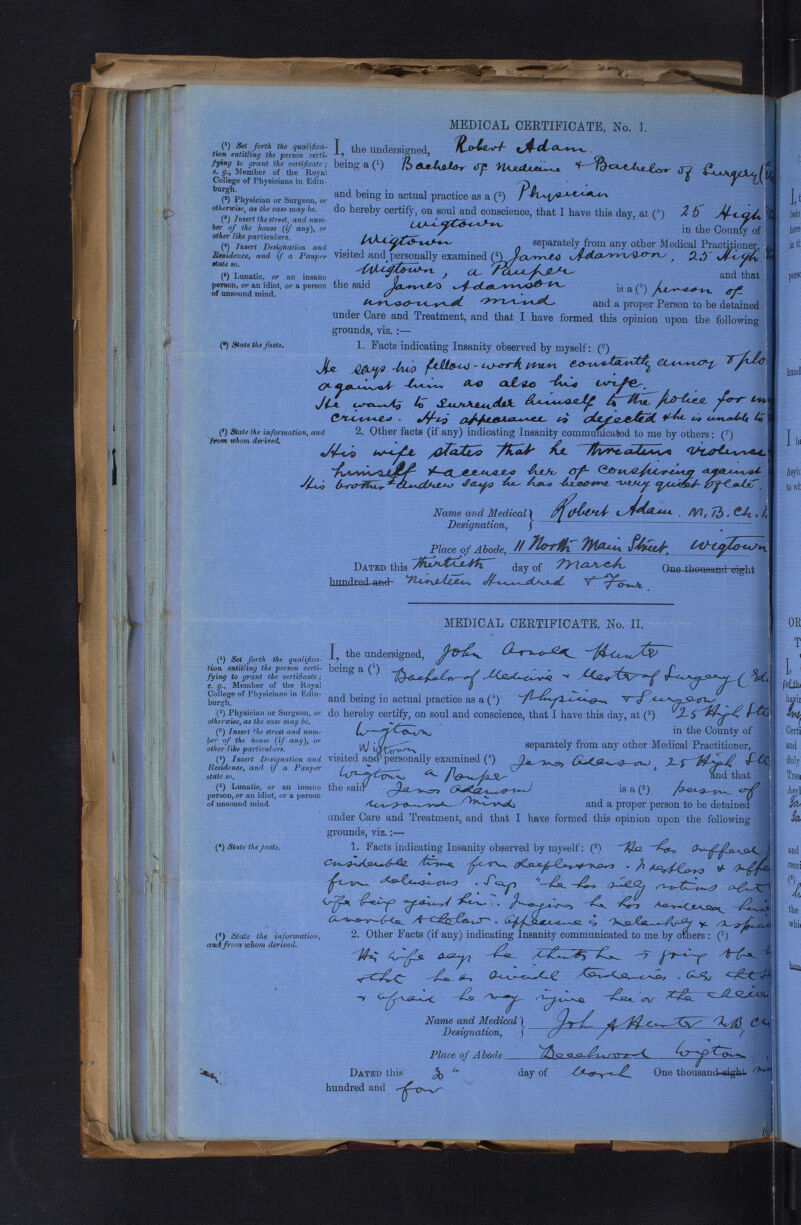 MEDICAL CERTIFICATE, No. I.
(¹) Set forth the qualifica-
tion entitling the person certi-
fying to grant the certificate;
e. g., Member of the Royal
College of Physicians in Edin-
burgh.
(²) Physician or Surgeon, or
otherwise, as the case may be.
(³) Insert the street, and num-
ber of the house (if any), or
other like particulars.
(⁴) Insert Designation and
Residence, and if a Pauper
state so.
(⁵) Lunatic, or an insane
person, or an idiot, or a person
of unsound mind.
I, the undersigned, Robert Adam
being a (¹) Bachelor of Medicine & Bachelor of Surgery
and being in actual practice as a (²) Physician
do hereby certify, on soul and conscience, that I have this day, at (³) 25 High
Wigtown in the County of
Wigtown separately from any other Medical Practitioner,
visited and personally examined (⁴) James Adamson, 25 High
Wigtown, a Pauper and that
the said James Adamson is a (⁵) person of
unsound mind and a proper Person to be detained
under Care and Treatment, and that I have formed this opinion upon the following
grounds, viz. :—
(⁶) State the facts.
1. Facts indicating Insanity observed by myself: (⁶)
He says his fellow-workmen constantly annoy & plo
against him as also his wife.
He wants to surrender himself to the police for
crimes. His appearance is dejected & he is unable to
(⁷) State the information, and
from whom derived.
2. Other facts (if any) indicating Insanity communicated to me by others: (⁷)
His wife states that he threatens violence
himself & accuses her of conspiring against
His brother Andrew says he has become very quiet of late.
Name and Medical Designation, Robert Adam. M.B. Ch.
Place of Abode, 11 North Main Street, Wigtown
DATED this thirtieth day of March One thousand eight
hundred and Nineteen Hundred & Four.
MEDICAL CERTIFICATE, No. II.
(¹) Set forth the qualifica-
tion entitling the person certi-
fying to grant the certificate;
e. g., Member of the Royal
College of Physicians in Edin-
burgh.
(²) Physician or Surgeon, or
otherwise, as the case may be.
(³) Insert the street and num-
ber of the house (if any), or
other like particulars.
(⁴) Insert Designation and
Residence, and if a Pauper
state so.
(⁵) Lunatic, or an insane
person, or an idiot, or a person
of unsound mind.
I, the undersigned, John Arnold Hunter
being a (¹) Bachelor of Medicine & Master of Surgery (Ed
and being in actual practice as a (²) Physician & Surgeon
do hereby certify, on soul and conscience, that I have this day, at (³) 25 High Ste
Wigtown in the County of
Wigtown separately from any other Medical Practitioner,
visited and personally examined (⁴) James Adamson, 25 High Ste
Wigtown a Pauper and that
the said James Adamson is a (⁵) person of
unsound mind and a proper person to be detained
under Care and Treatment, and that I have formed this opinion upon the following
grounds, viz. :—
(⁶) State the facts.
1. Facts indicating Insanity observed by myself: (⁶) He has suffered
considerable time from sleeplessness. Is restless & suffe
from delusions. Says "he has silly notions about
wife being against him". Imagines he has rendered him
amenable to the law. Appearance is melancholy &
(⁷) State the information,
and from whom derived.
2. Other Facts (if any) indicating Insanity communicated to me by others: (⁷)
His wife says he thinks he is going to be
& that he has suicidal tendencies.
is afraid he may injure her or the
Name and Medical Designation, John A Hunter M.B, CM
Place of Abode Beechwood Wigtown.
DATED this 30th day of March One thousand eight
hundred and four